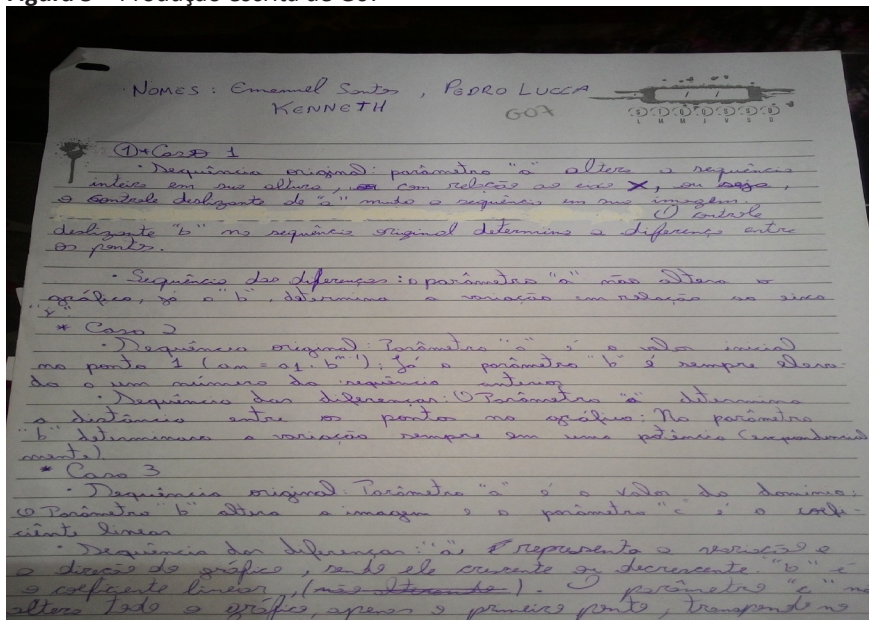 Figura 5 – Produção escrita de G07
NOMES: Emanuel Santos, PEDRO LUCCA
KENNETH G07
① * Caso 1
· Sequência original: parâmetro "a" altera a sequência
inteira em sua altura, com relação ao eixo X, ou seja,
o controle deslizante de "a" muda a sequência em sua imagem.
O controle
deslizante "b" na sequência original determina a diferença entre
os pontos.
· Sequência das diferenças: o parâmetro "a" não altera o
gráfico, já o "b", determina a variação em relação ao eixo
"y".
* Caso 2
· Sequência original: Parâmetro "a" é o valor inicial
no ponto 1 (an = a1 · b^n-1); Já o parâmetro "b" é sempre eleva-
do a um número da sequência anterior.
· Sequência das diferenças: O Parâmetro "a" determina
a distância entre os pontos no gráfico; No parâmetro
"b" determinara a variação sempre em uma potência (exponencial
mente).
* Caso 3
· Sequência original: Parâmetro "a" é o valor do domínio;
O Parâmetro "b" altera a imagem e o parâmetro "c" é o coefi-
ciênte linear
· Sequência das diferenças: "a" representa a variação e
a direção do gráfico, sendo ele crescente ou decrescente "b" é
o coeficiente linear, (não alterando). O parâmetro "c" não
altera todo o gráfico, apenas o primeiro ponto,